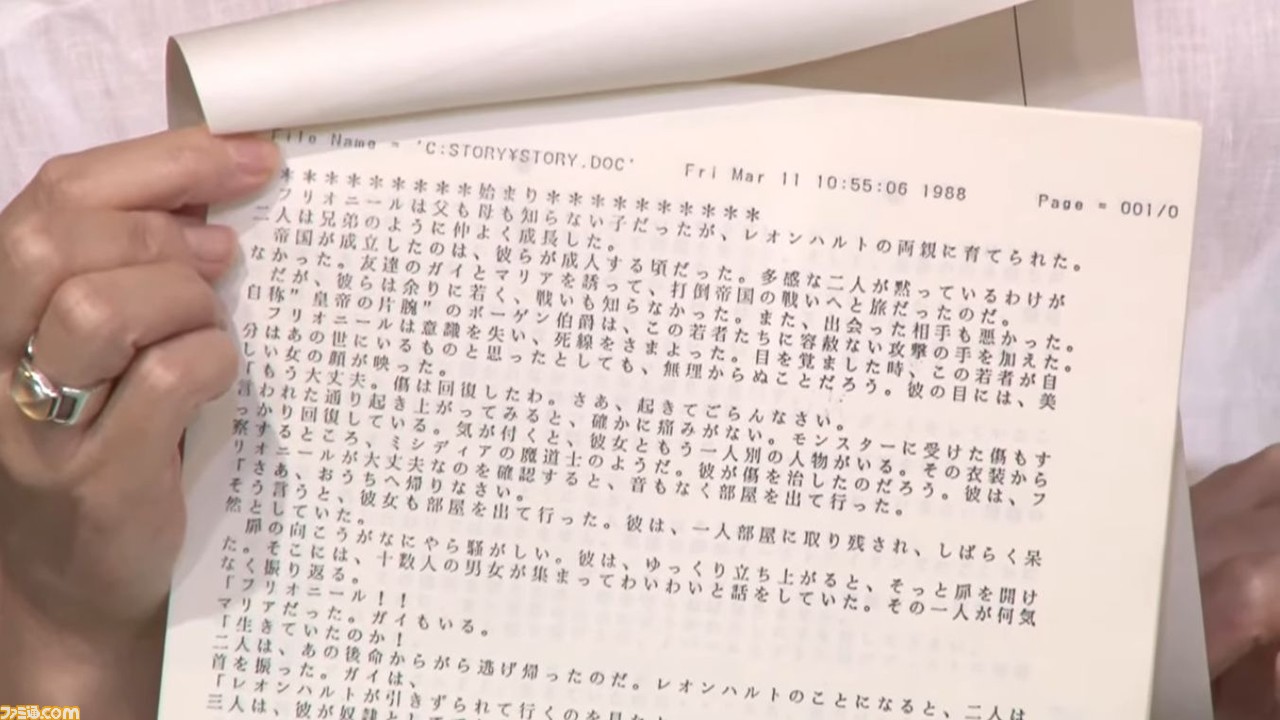 File Name = 'C:STORY¥STORY.DOC' Fri Mar 11 10:55:06 1988 Page = 001/0
＊＊＊＊＊＊＊＊＊始まり＊＊＊＊＊＊＊＊＊＊
フリオニールは父も母も知らない子だったが、レオンハルトの両親に育てられた。
二人は兄弟のように仲よく成長した。
帝国が成立したのは、彼らが成人する頃だった。多感な二人が黙っているわけが
なかった。友達のガイとマリアを誘って、打倒帝国の戦いへと旅だったのだ。
だが、彼らは余りに若く、戦いも知らなかった。また、出会った相手も悪かった。
自称”皇帝の片腕”のボーゲン伯爵は、この若者たちに容赦ない攻撃の手を加えた。
フリオニールは意識を失い、死線をさまよった。目を覚ました時、この若者が自
分はあの世にいるものと思ったとしても、無理からぬことだろう。彼の目には、美
しい女の顔が映った。
「もう大丈夫。傷は回復したわ。さあ、起きてごらんなさい。
言われた通り起き上がってみると、確かに痛みがない。モンスターに受けた傷もす
っかり回復している。気が付くと、彼女ともう一人別の人物がいる。その衣装から
察するところ、ミシディアの魔道士のようだ。彼が傷を治したのだろう。彼は、フ
リオニールが大丈夫なのを確認すると、音もなく部屋を出て行った。
「さあ、おうちへ帰りなさい。
そう言うと、彼女も部屋を出て行った。彼は、一人部屋に取り残され、しばらく呆
然としていた。
扉の向こうがなにやら騒がしい。彼は、ゆっくり立ち上がると、そっと扉を開け
た。そこには、十数人の男女が集まってわいわいと話をしていた。その一人が何気
なく振り返る。
「フリオニール！！
マリアだった。ガイもいる。
「生きていたのか！
二人は、あの後命からがら逃げ帰ったのだ。レオンハルトのことになると、二人は
首を振った。ガイは、
「レオンハルトが引きずられて行くのを見た
三人は、彼が奴隷として
ファミ通.com